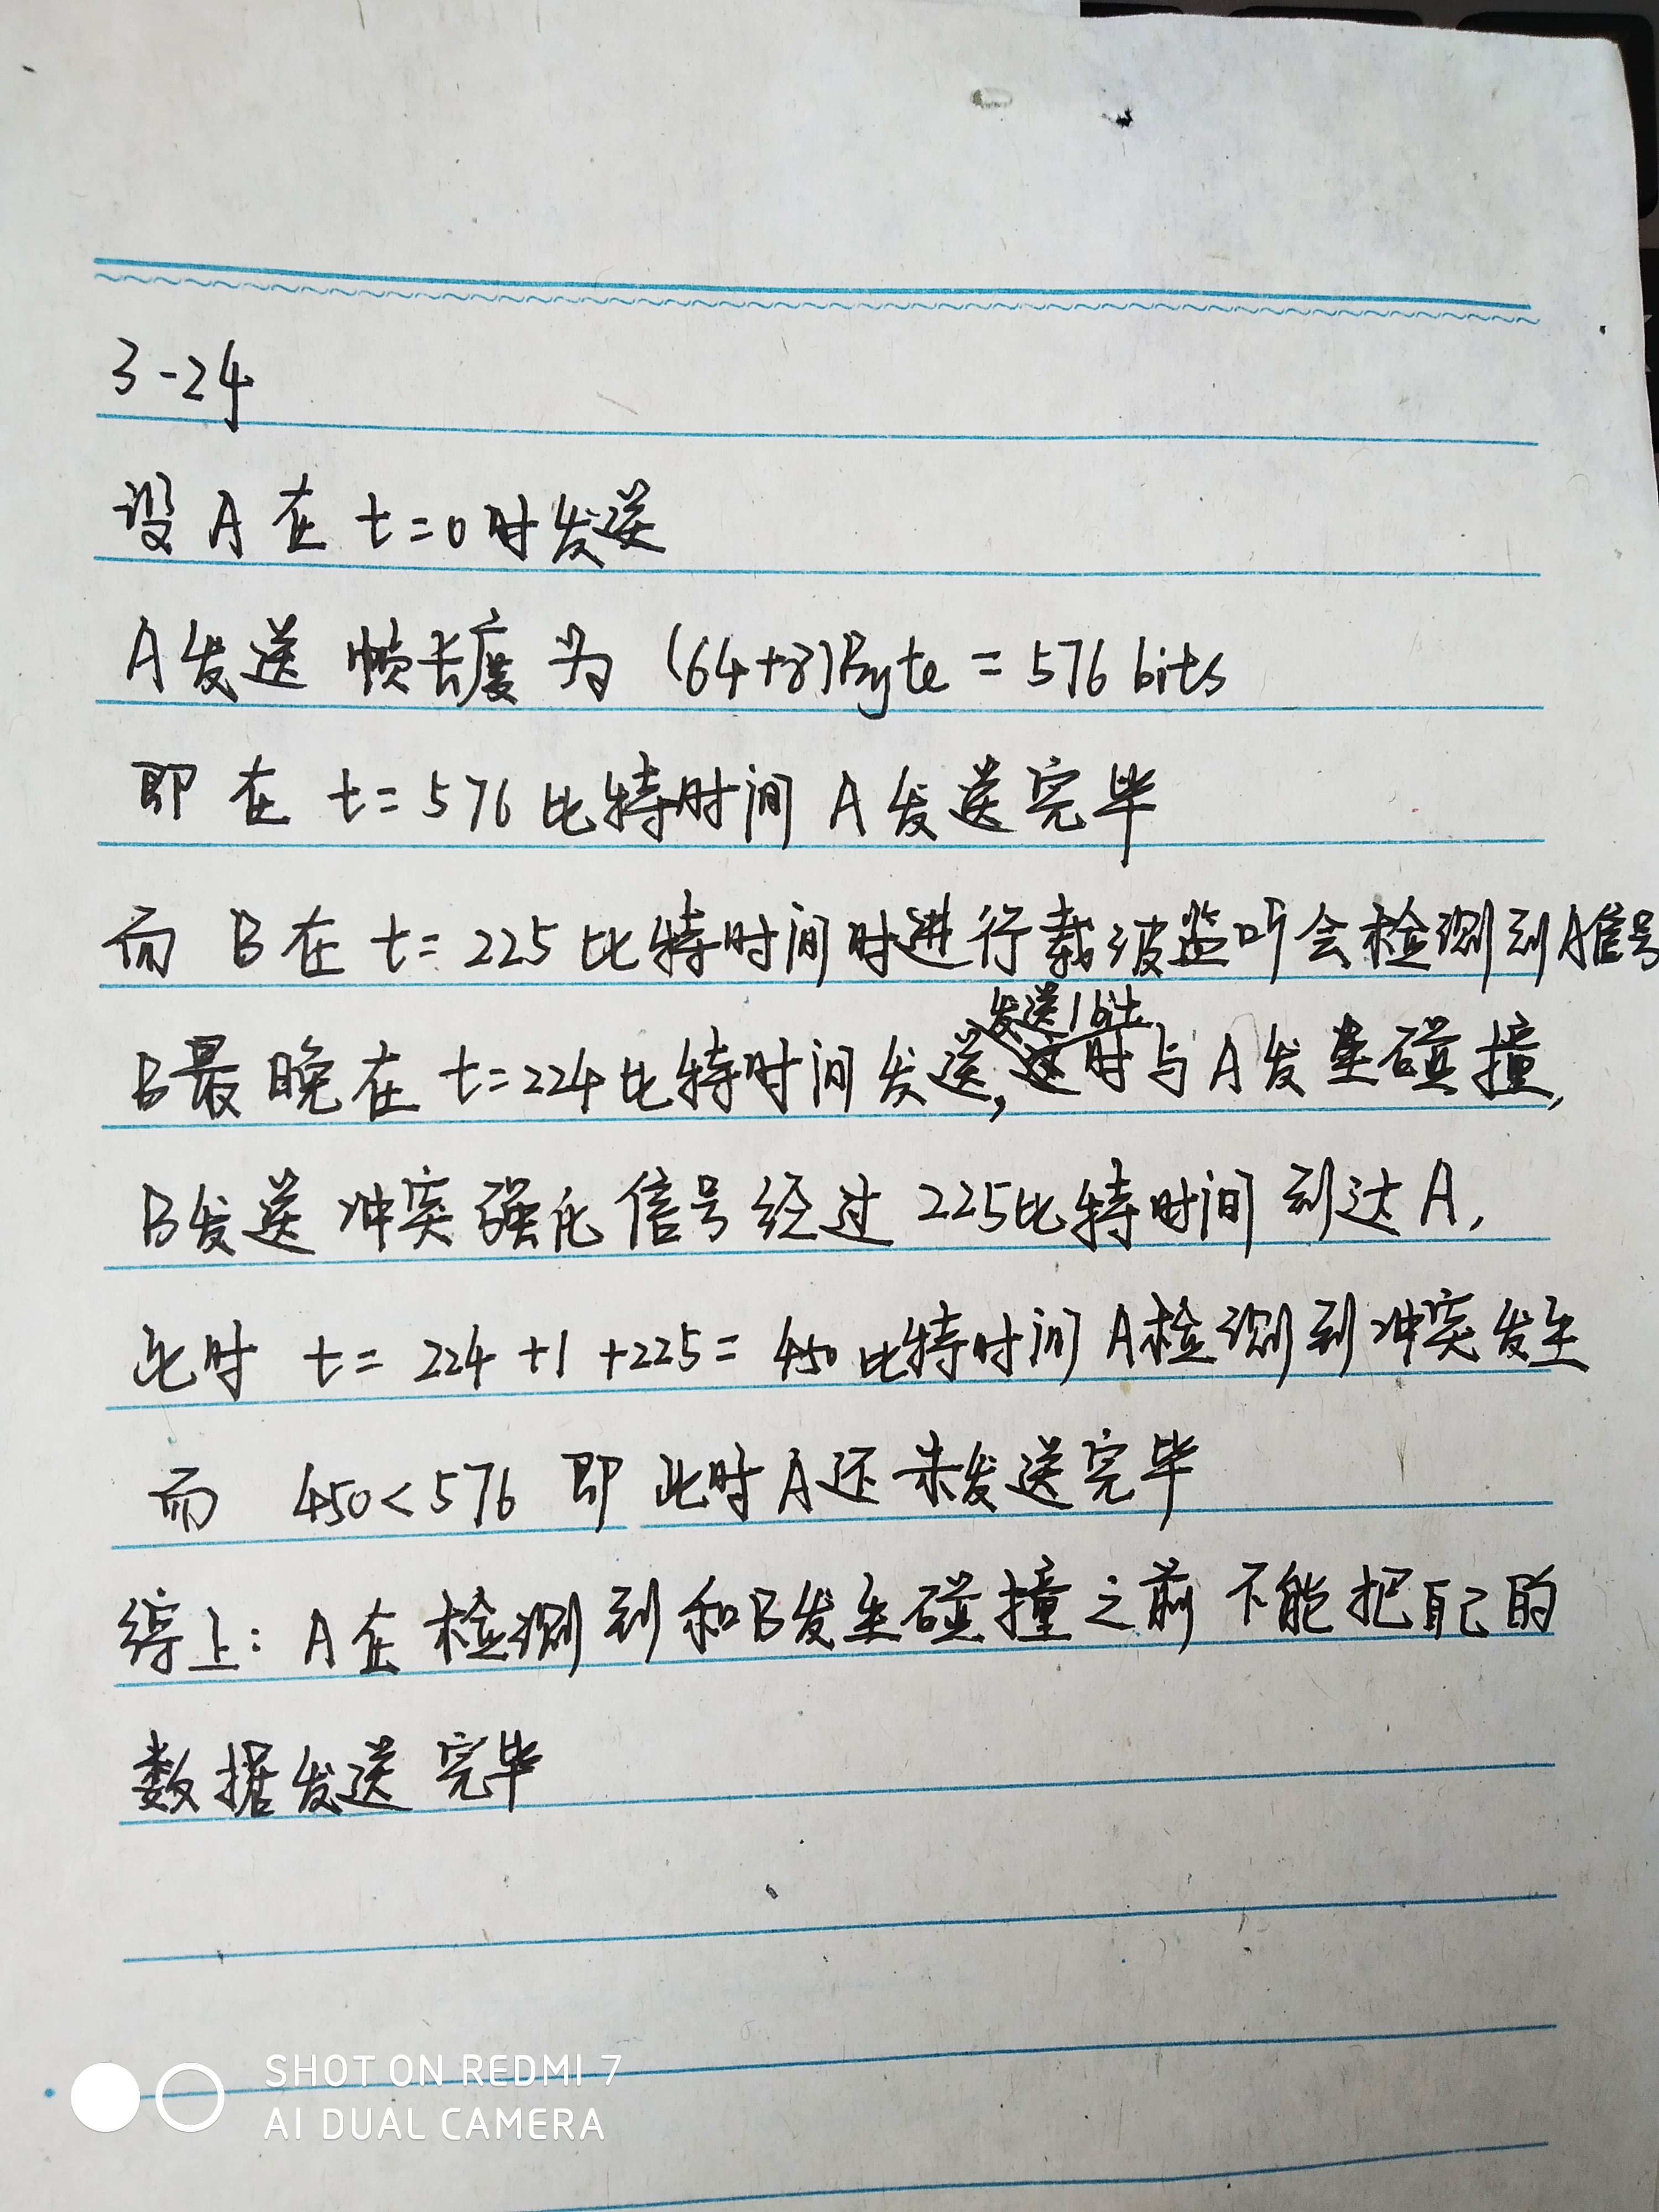 3-24
设 A 在 t=0时发送
A发送 帧长度 为 (64+8)Byte = 576 bits
即 在 t=576 比特时间 A 发送完毕
而 B 在 t=225 比特时间时进行载波监听会检测到A信号
发送1bit
B最晚在 t=224比特时间发送,时与A发生碰撞,
B发送 冲突强化信号经过 225比特时间到达A,
此时 t= 224 +1 +225= 450 比特时间 A检测到冲突发生
而 450<576 即 此时A还未发送完毕
综上: A在检测到和B发生碰撞之前不能把自己的
数据发送完毕
SHOT ON REDMI 7
AI DUAL CAMERA